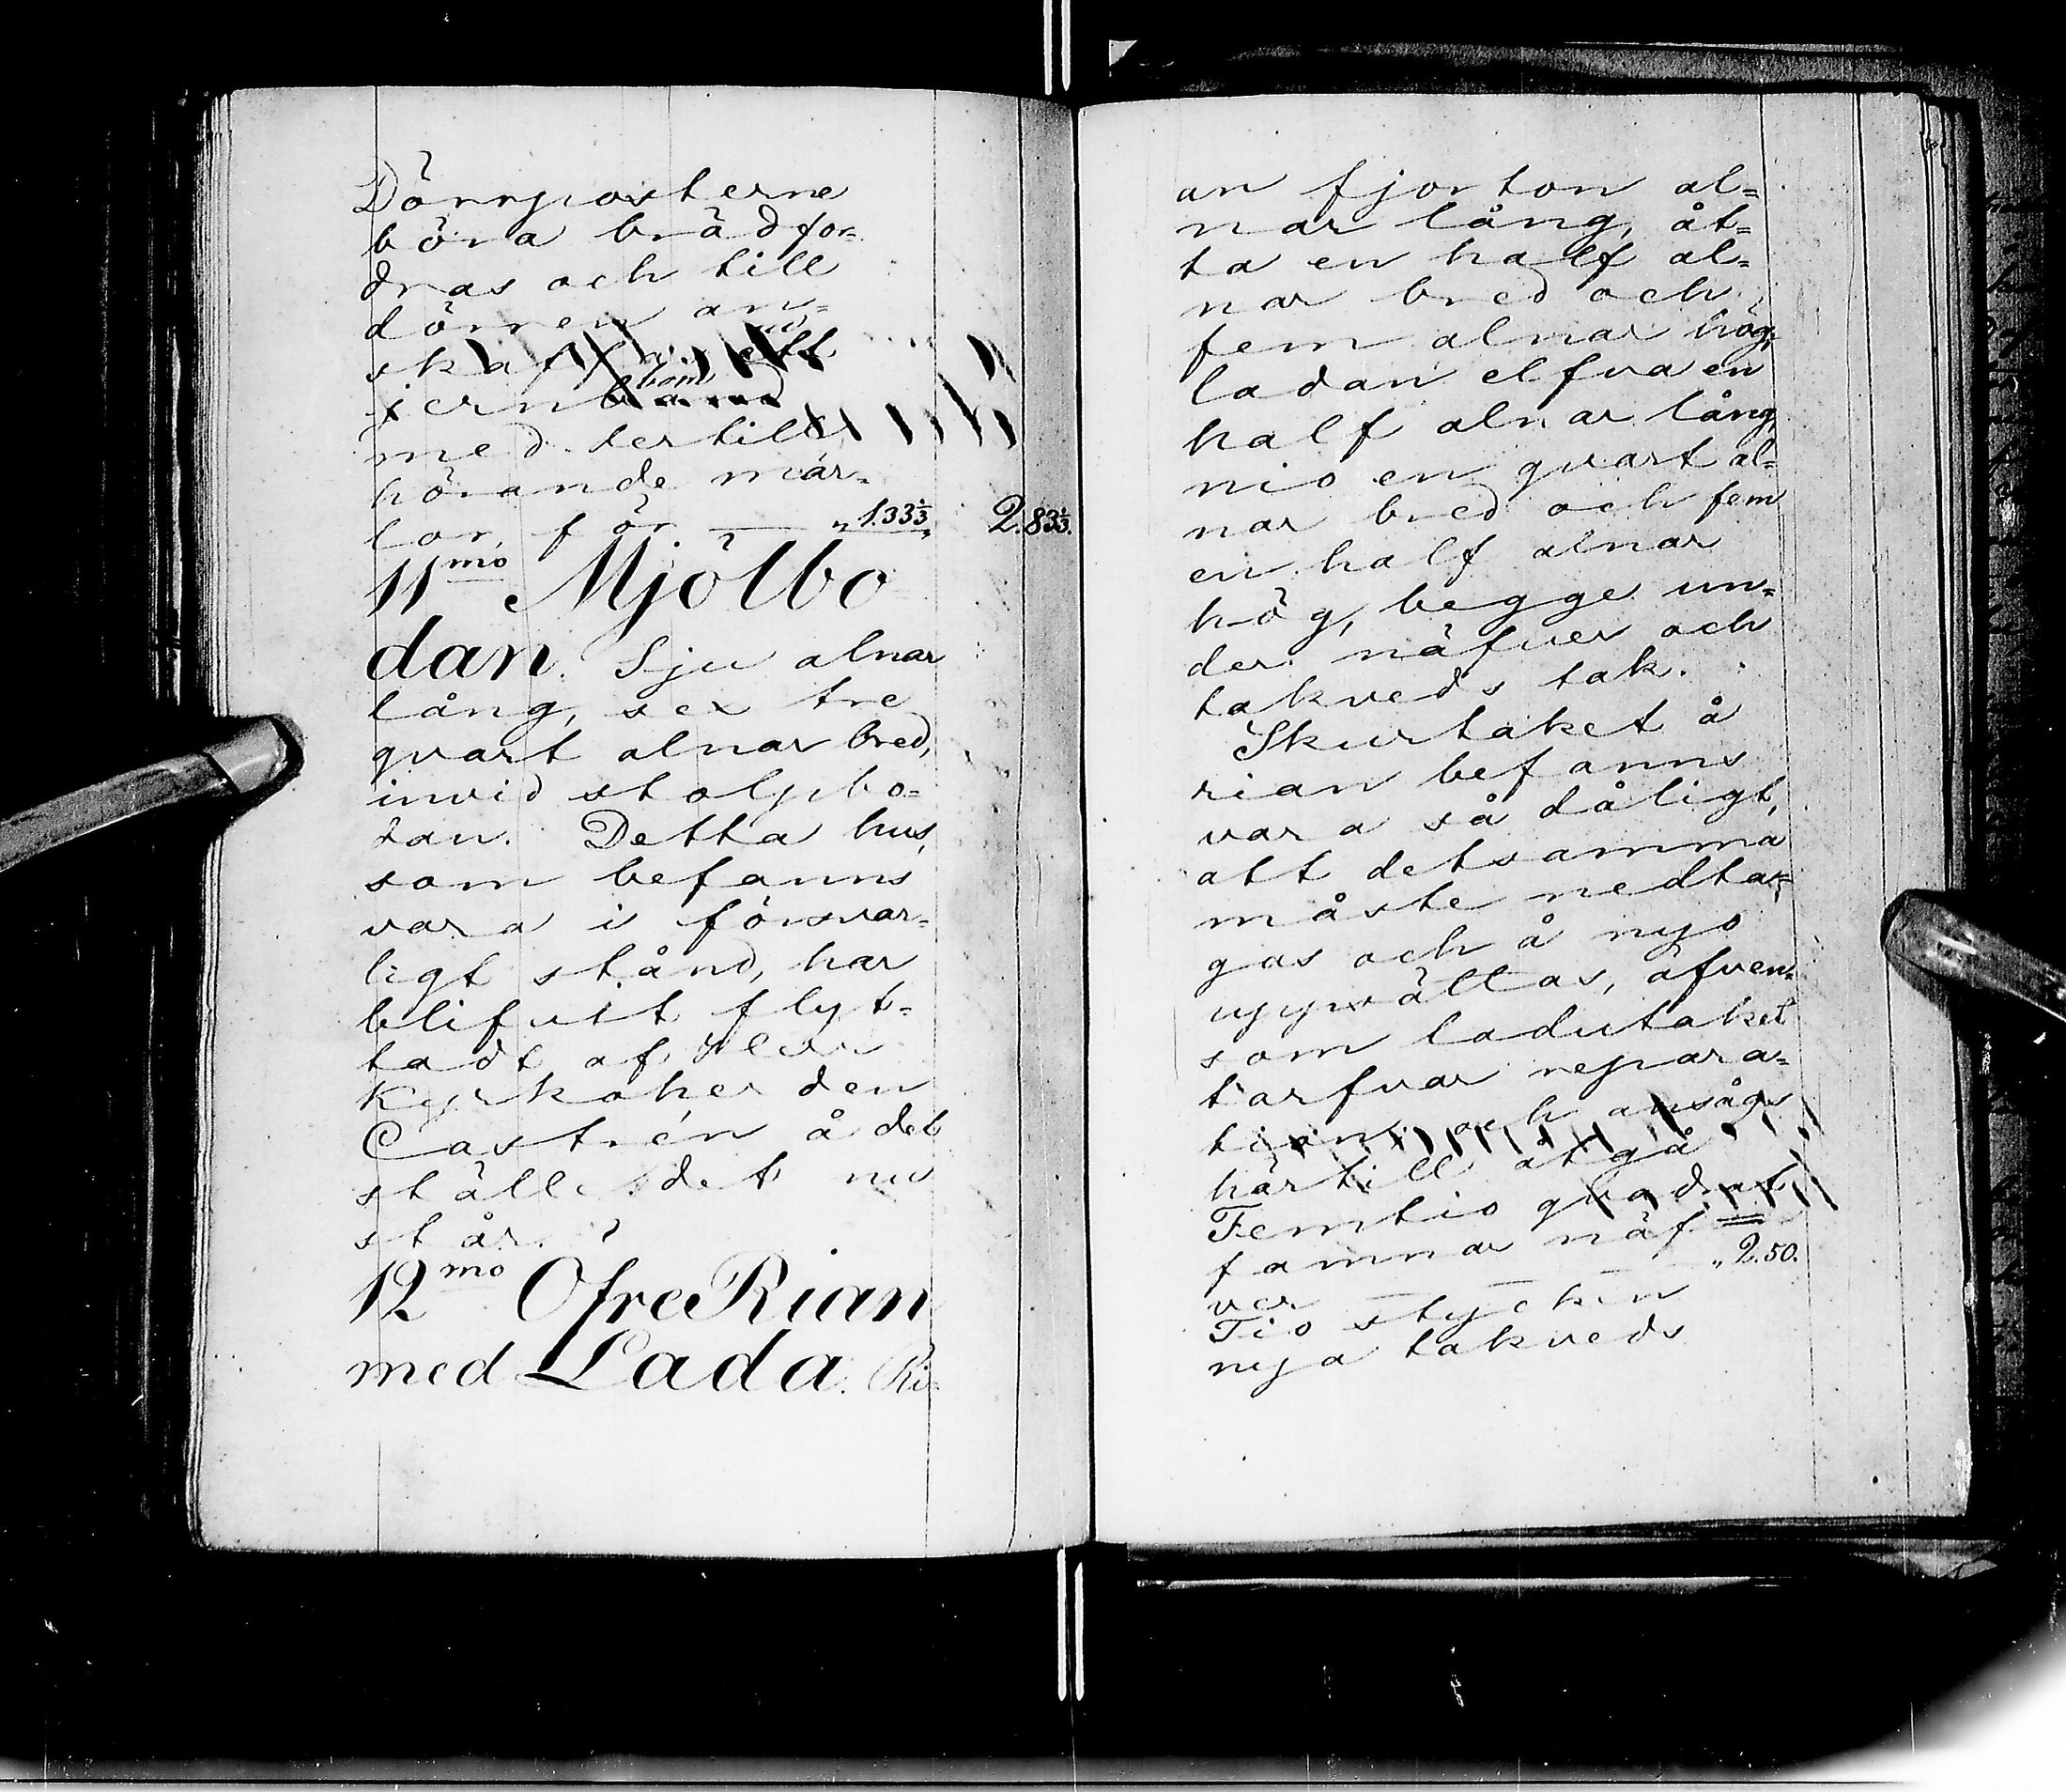 Dörrposterne
böra brädfor=
dras och till
dörren an=
skaffas ett
jernbom
med dertill
hörande mär=
lor för — „ 1.33⅓. 2.83⅓.
11mo Mjölbo
dan. Sju alnar
lång, sex tre
qvart alnar bred,
invid stolpbo=
dan. Detta hus,
som befanns
vara i försvar=
ligt stånd, har
blifvitt flyt=
tadt af
Kyrkoherden
Castrén å det
ställe det nu
står.
12mo Öfre Rian
med Lada. Ri=
an fjorton al=
nar lång, åt=
ta en half al=
nar bred och
fem alnar hög,
ladan elfva en
half alnar lång,
nio en qvart al=
nar bred och fem
en half alnar
hög, begge un=
der näfver och
takveds tak.
Skurtaket å
rian befanns
vara så dåligt,
att detsamma
måste nedta=
gas och å nyo
uppsättas, äfven=
som ladutaket
tarfvar repara=
tion och ansågs
härtill åtgå
Femtio quadrat
famnar näf=
ver — — „ 2.50.
Tio stycken
nya takveds